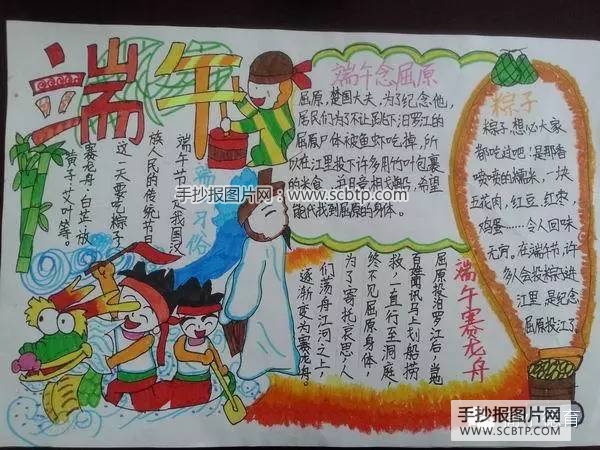 端午
端午习俗
端午节是我国汉
族人民的传统节日
这一天要吃粽子
赛龙舟,白芷,放
黄子,艾叶等。
端午念屈原
屈原,楚国大夫,为了纪念他,
居民们为了不让跳下汨罗江的
屈原尸体被鱼虾吃掉,所
以在江里投下许多用竹叶包裹
的米食,并且竞相划船,希望
能代找到屈原的身体。
端午赛龙舟
屈原投汨罗江后,当地
百姓闻讯马上划船捞
救,一直行至洞庭
终不见屈原身体,
为了寄托哀思,人
们荡舟江河之上,
逐渐变为赛龙舟。
粽子
粽子,想必大家
都吃过吧!是那香
喷喷的糯米,一块
五花肉,红豆,红枣,
鸡蛋……令人回味
无穷。在端午节,许
多人会投粽子进
江里,是纪念
屈原投江了。
手抄报图片网www.scbtp.com
手抄报图片网
WWW.SCBTP.COM